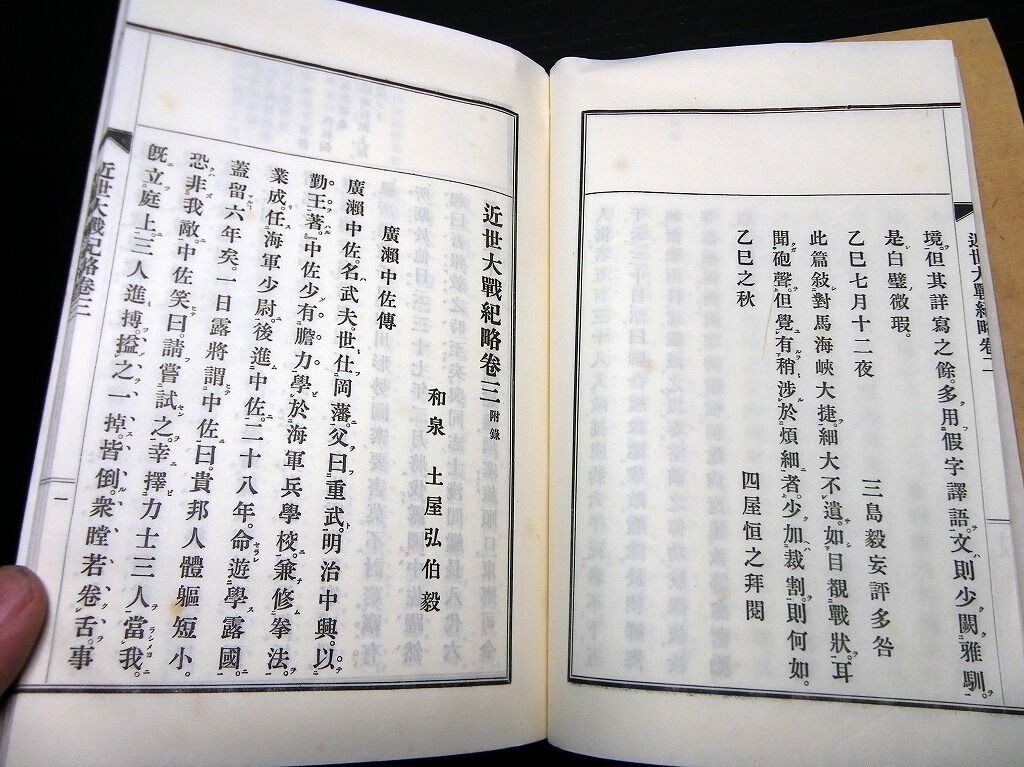 近世大戰紀略卷二
境。但其詳寫之餘。多用假字譯語。文則少闕雅馴。
是白璧微瑕。
乙巳七月十二夜
三島毅妄評多咎
此篇敍對馬海峽大捷。細大不遺。如目覩戰狀。耳
聞砲聲。但覺有稍涉於煩細者。少加裁割。則何如。
乙巳之秋
四屋恒之拜閱
近世大戰紀略卷三 附錄
和泉 土屋弘伯毅
廣瀨中佐傳
廣瀨中佐。名武夫。世仕岡藩。父曰重武。明治中興。以
勤王著。中佐少有膽力。學於海軍兵學校。兼修拳法。
業成。任海軍少尉。後進中佐。二十八年。命遊學露國。
蓋留六年矣。一日露將謂中佐曰。貴邦人體軀短小。
恐非我敵。中佐笑曰。請嘗試之。幸擇力士三人當我。
既立庭上。三人進搏。搤之一掉。皆倒。衆瞠若卷舌。事
近世大戰紀略卷三
一